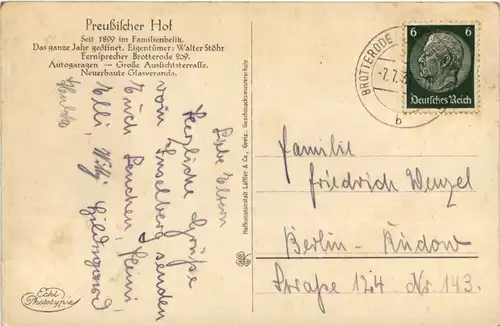 Preußischer Hof
Seit 1899 im Familienbesitz.
Das ganze Jahr geöffnet. Eigentümer: Walter Stöhr
Fernsprecher Brotterode 209.
Autogaragen — Große Aussichtsterrasse.
Neuerbaute Glasveranda.
Liebe Eltern
Herzliche Grüße
vom Inselberg senden
Euch Lenchen, Heini,
Elli, Willi, Hildegard
Echt
Phototypie
Hofkunstanstalt Löffler & Co., Greiz. Geschmacksmusterschutz
BROTTERODE
-7.7.3
b
6 6
Deutsches Reich
Familie
Friedrich Wenzel
Berlin-Rudow
Straße 124 Nr. 143.